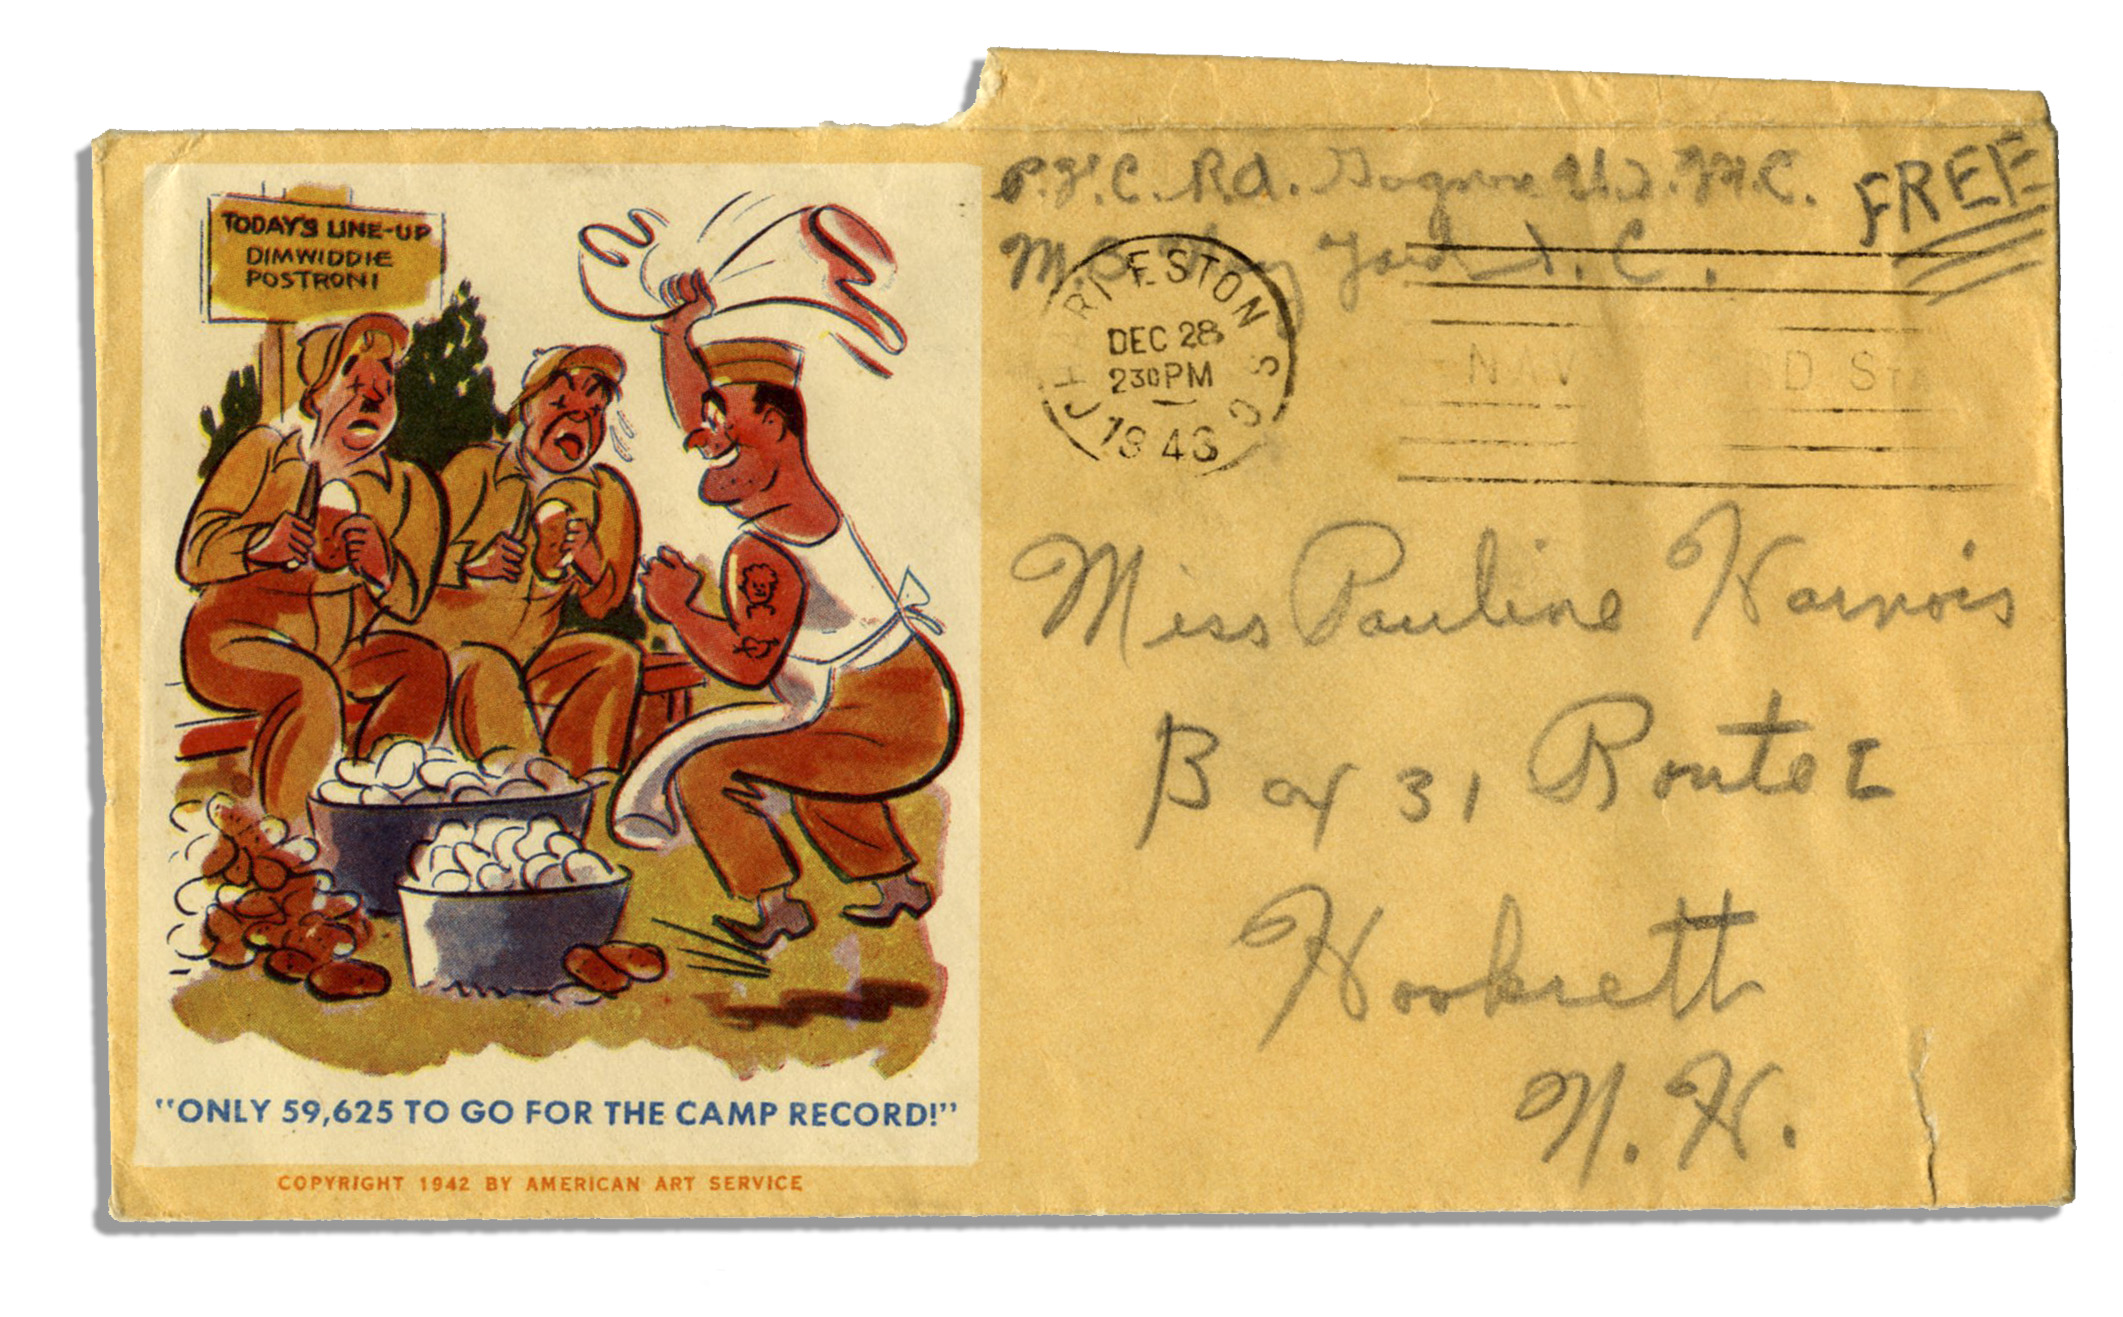 TODAY'S LINE-UP
DIMWIDDIE
POSTRONI
"ONLY 59,625 TO GO FOR THE CAMP RECORD!"
COPYRIGHT 1942 BY AMERICAN ART SERVICE
P.F.C. R.A. U.S.M.C.
M.B. Navy Yard S.C.
FREE
CHARLESTON S.C.
DEC 28
230 PM
1943
NAVY YARD STA
Miss Pauline Harnois
Box 31 Route 2
Hooksett
N.H.